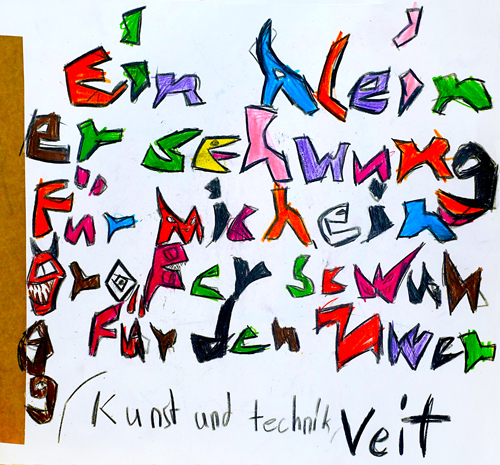 Ein klein
er schwung
für mich ein
großer scwun
g für den Zwer
g
Kunst und technik, Veit